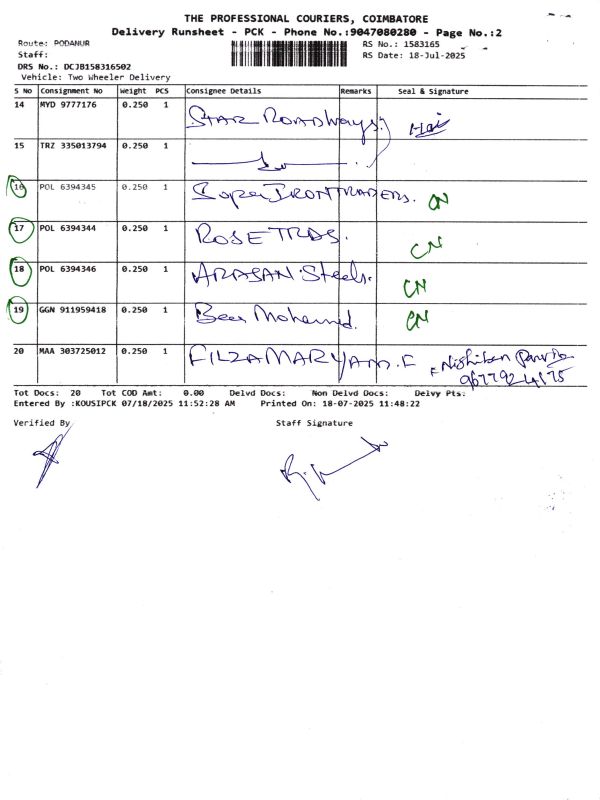 THE PROFESSIONAL COURIERS, COIMBATORE
Delivery Runsheet - PCK - Phone No.:9047080280 - Page No.:2
Route: PODANUR RS No.: 1583165
Staff: RS Date: 18-Jul-2025
DRS No.: DCJB158316502
Vehicle: Two Wheeler Delivery
S No Consignment No Weight PCS Consignee Details Remarks Seal & Signature
14 MYD 9777176 0.250 1 STAR ROADWays
15 TRZ 335013794 0.250 1
16 POL 6394345 0.250 1 Super IRONTRADERS. CN
17 POL 6394344 0.250 1 ROSE TRDS. CN
18 POL 6394346 0.250 1 ARASAN Steels. CN
19 GGN 911959418 0.250 1 Beer Mohamed. CN
20 MAA 303725012 0.250 1 FILZA MARYAM. F
Tot Docs: 20 Tot COD Amt: 0.00 Delvd Docs: Non Delvd Docs: Delvy Pts:
Entered By :KOUSIPCK 07/18/2025 11:52:28 AM Printed On: 18-07-2025 11:48:22
Verified By Staff Signature